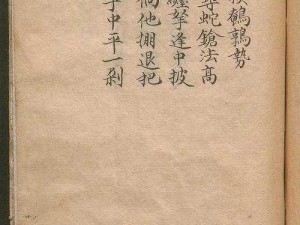 鷂鶉勢
蛇鎗法高
拏逢中披
他掤退把
中平一剎